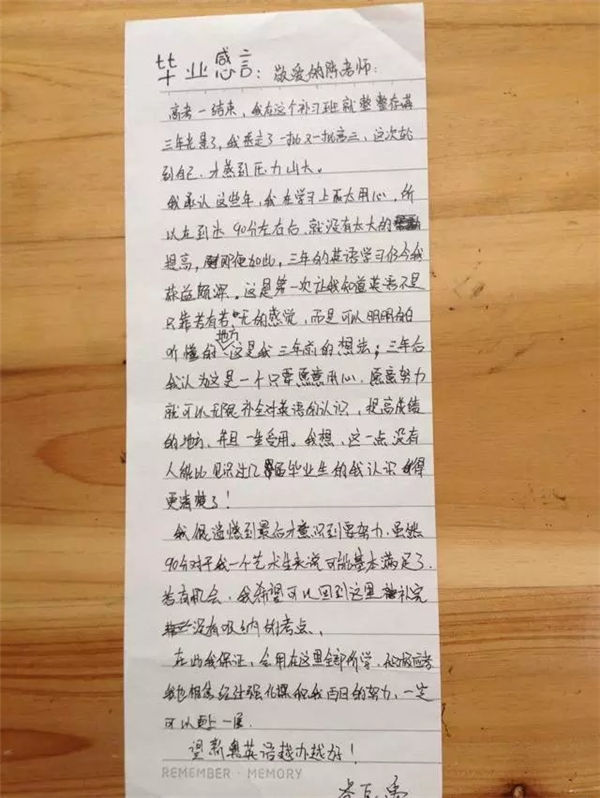 毕业感言：敬爱的陈老师：
高考一结束，我在这个补习班就整整存满
三年光景了，我熬走了一批又一批高三，这次轮
到自己，才感到压力山大。
我承认这些年，我在学习上不太用心，所
以在到达90分左右后，就没有太大的
提高，即便如此，三年的英语学习仍令我
获益颇深。这是第一次让我知道英语不是
只靠若有若无的感觉，而是可以明明白白
听懂的地方，这是我三年前的想法；三年后
我认为这是一个只要愿意用心，愿意努力
就可以无限补全对英语的认识，提高成绩
的地方，并且一生受用。我想，这一点没有
人能比见识过几届毕业生的我认识得
更清楚了！
我很遗憾到最后才意识到要努力，虽然
90分对于我一个艺术生来说可能基本满足了，
若有机会，我希望可以回到这里补完
没有吸纳的考点。
在此我保证，会用在这里全部所学，积极应考
我也相信经过强化课和我百日的努力，一定
可以更上一层。
望新奥英语越办越好！
REMEMBER · MEMORY